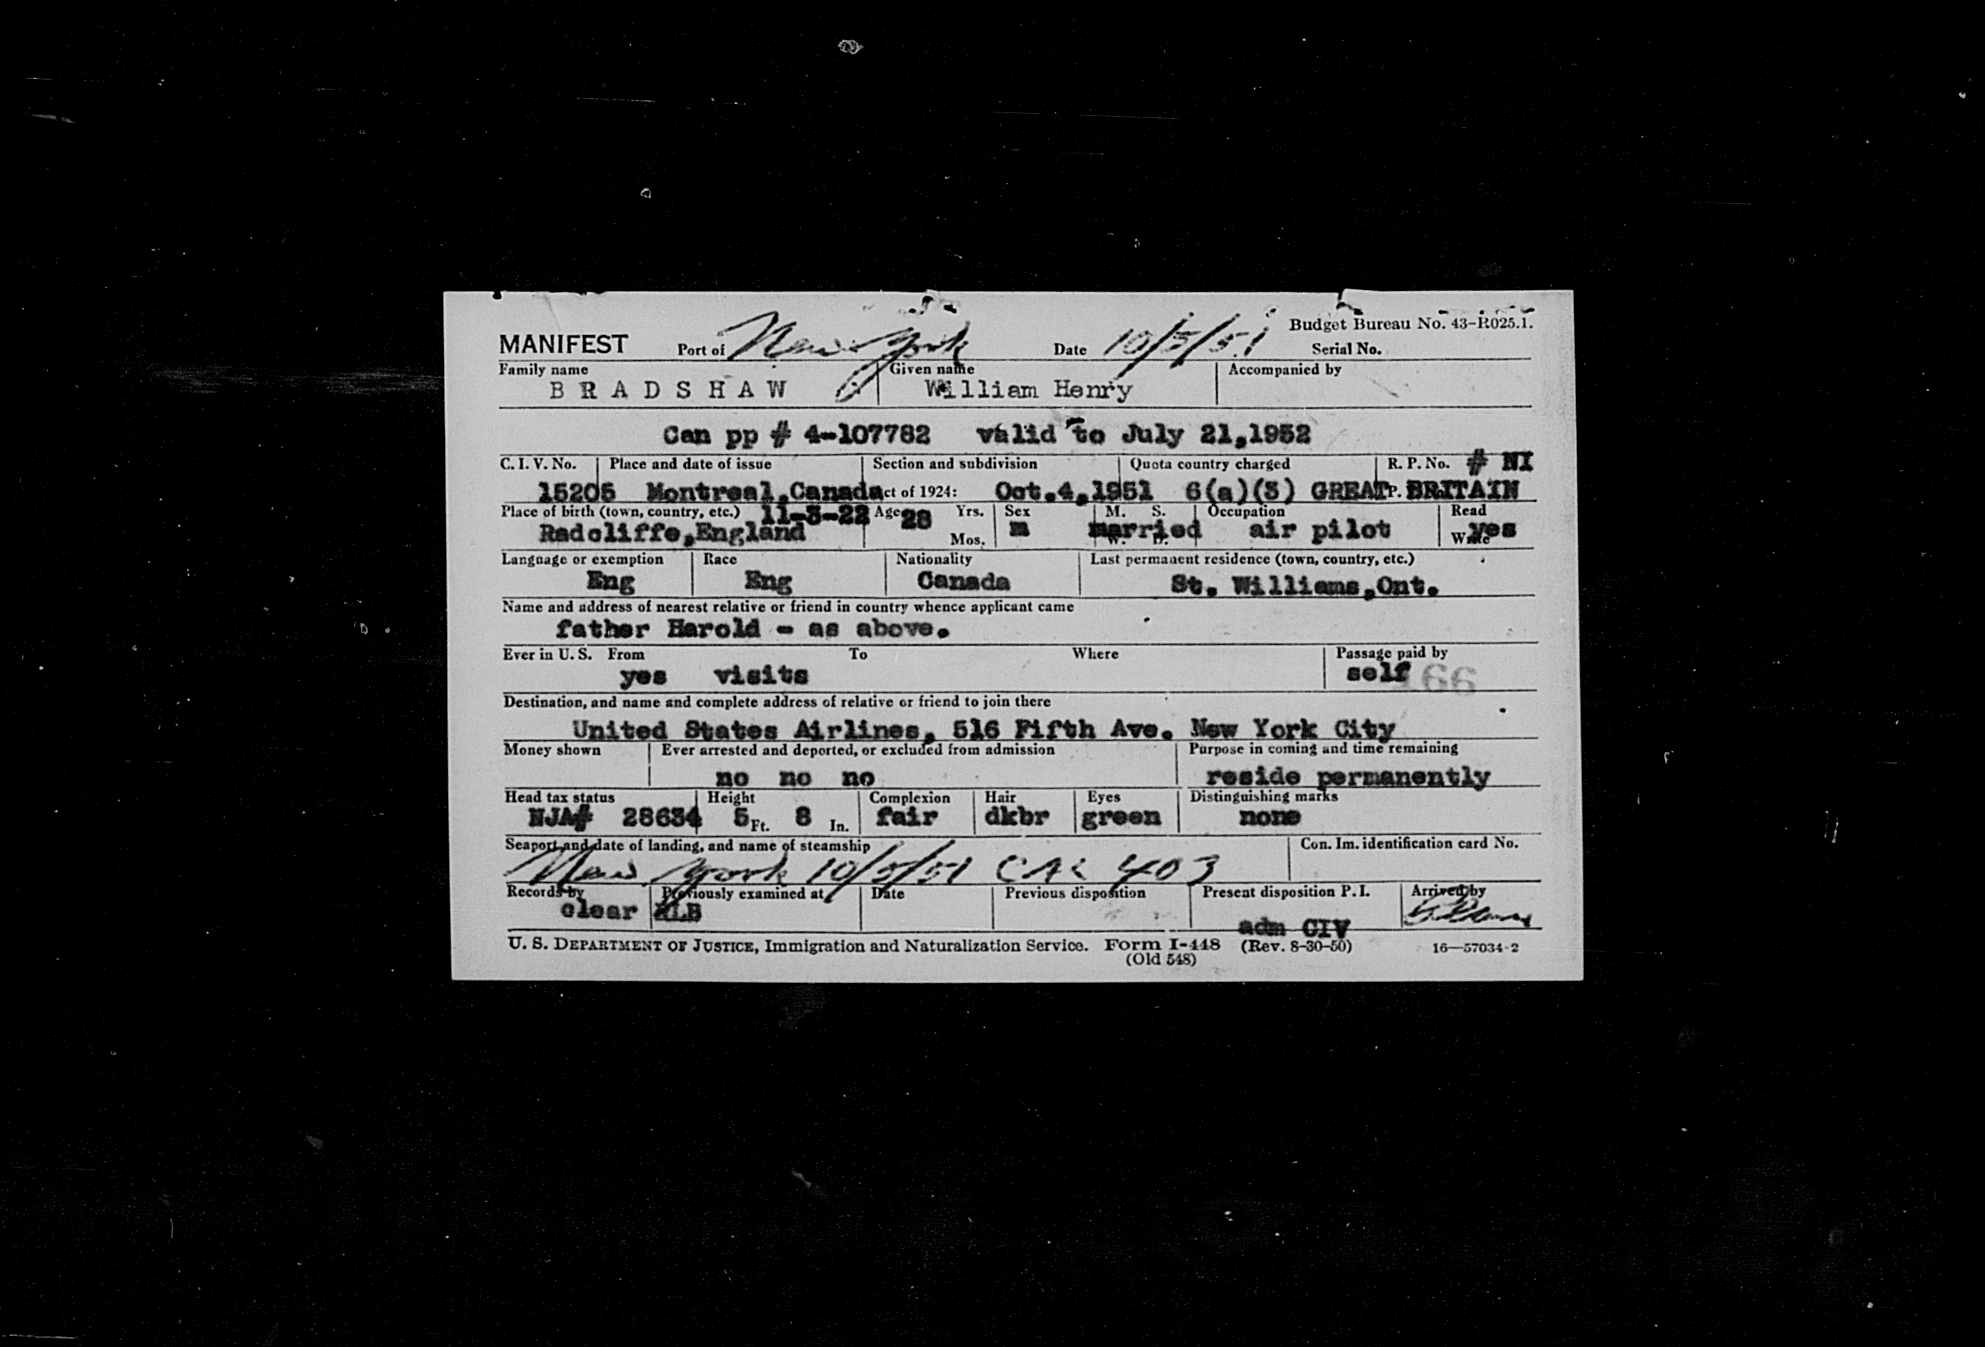 Budget Bureau No. 43-R025.1.
MANIFEST Port of New York Date 10/5/51 Serial No.
Family name Given name Accompanied by
BRADSHAW William Henry
Can pp # 4-107782 valid to July 21,1952
C. I. V. No. Place and date of issue Section and subdivision Quota country charged R. P. No. # NI
15205 Montreal,Canada ct of 1924: Oct.4,1951 6(a)(3) GREAT P. BRITAIN
Place of birth (town, country, etc.) 11-3-22 Age 28 Yrs. Sex M. S. Occupation Read
Radcliffe,England Mos. m married W. D. air pilot Write yes
Language or exemption Race Nationality Last permanent residence (town, country, etc.)
Eng Eng Canada St. Williams,Ont.
Name and address of nearest relative or friend in country whence applicant came
father Harold - as above.
Ever in U. S. From To Where Passage paid by
yes visits self 166
Destination, and name and complete address of relative or friend to join there
United States Airlines, 516 Fifth Ave. New York City
Money shown Ever arrested and deported, or excluded from admission Purpose in coming and time remaining
no no no reside permanently
Head tax status Height Complexion Hair Eyes Distinguishing marks
NJA# 28634 5 Ft. 8 In. fair dkbr green none
Seaport and date of landing, and name of steamship Con. Im. identification card No.
New York 10/5/51 CAL 403
Records by Previously examined at Date Previous disposition Present disposition P. I. Arrived by
clear RLB adm CIV
U. S. DEPARTMENT OF JUSTICE, Immigration and Naturalization Service. Form I-448 (Rev. 8-30-50) 16—57034-2
(Old 548)